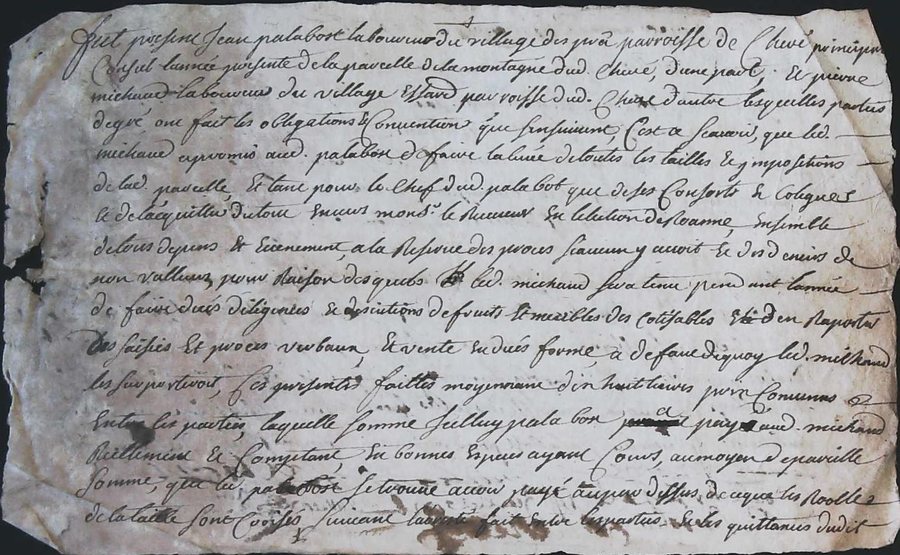 fut present Jean palabost laboureur du village des pra parroisse de Cheré principal
Consul lannée presente de la parcelle de la montagne dud. Cheré, d'une part, Et pierre
michaud laboureur du village Essard parroisse dud. Cheré d'autre lesquelles parties
de gré ont fait les obligations & Convention que sensuivent, C'est a scavoir, que led.
michaud a promis aud. palabost de faire la levée de toutes les tailles & jmpositions
de lad. parcelle, Et tant pour le Chef dud. palabot que de ses Consorts & Colegues
& de lacquitter du tout Envers monsr. le Receveur En lelection de Roanne, Ensemble
de tous depens Et Evenement, a la Reserve des proces si aucun y avoit & des deniers de
non valleurs, pour Raison desquels led. michaud sera tenu pendant lannée
de faire dués diligences & de fruits Et meubles des Cotisables & d'en Raporter
des saisies Et proces verbaux, Et vente En dués forme, a defaut de quoy led. michaud
les suporteroit, Ces presentes faittes moyennant dix huit livres prix Convenus
Entre les parties, laquelle somme jcelluy palabost a payé aud. michaud
Réellement & Comptant, En bonnes Especes ayant Cours, au moyen de pareille
somme, que led. palabost se trouve avoir payé au par dessus, de ce que les Rolles
de la taille sont suivant fait Entre les parties & les quittances dudit